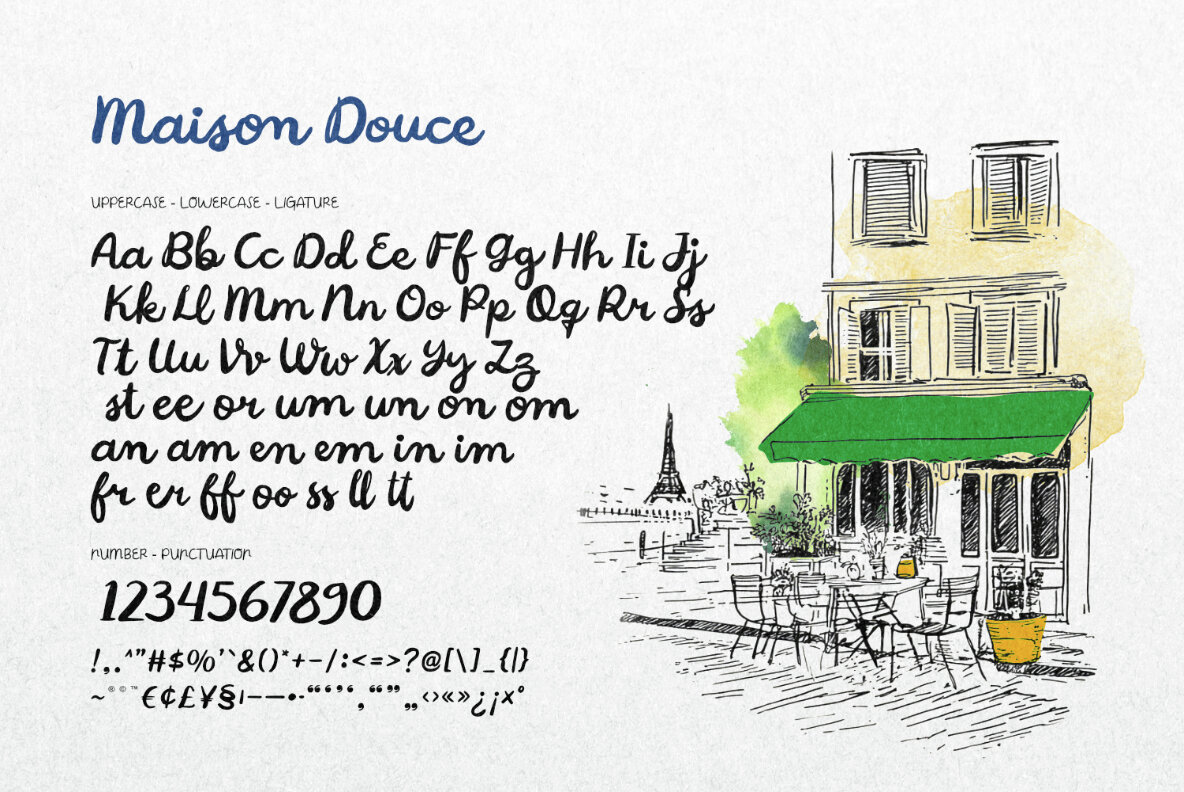 Maison Douce
UPPERCASE - LOWERCASE - LIGATURE
Aa Bb Cc Dd Ee Ff Gg Hh Ii Jj
Kk Ll Mm Nn Oo Pp Qq Rr Ss
Tt Uu Vv Ww Xx Yy Zz
st ee or um un on om
an am en em in im
fr er ff oo ss ll tt
NUMBER - PUNCTUATION
1234567890
!,.^"#$%'`&()*+-/:<=>?@[\]_{|}
~®©™€¢£¥§|–—•·“‘’‚“”„‹›«»¿¡×°